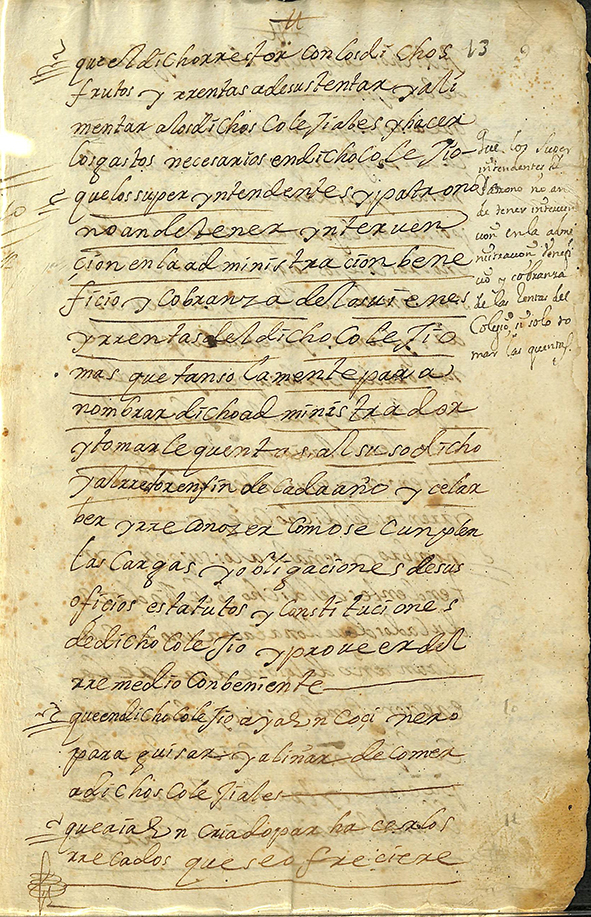 13
que el dicho rrestor con los dichos
frutos y rrentas a de sustentar y ali
mentar a los dichos Colejiales y hacer
los gastos necesarios en dicho Colejio
que los super yntendentes y patrono
no an de tener ynterven
cion en la administracion bene
ficio y cobranza de los vienes
y rrentas del dicho Colejio
mas que tan solamente para
nombrar dicho administrador
y tomarle quentas al susodicho
y al rretor en fin de cada año y
ber y rreconozer como se cunplen
las cargas y obligaciones de sus
oficios estatutos y constituciones
de dicho Colejio y proveer del
rremedio conbeniente
que en dicho Colejio aya un coçinero
para guisar y aliñar de comer
a dichos Colejiales
que aia un criado par hacer los
rrecados que se ofreciere
Que los super
intendentes y
Patrono no an
de tener interven
cion en la admi
nistracion benefi
cio y cobranza
de las Rentas del
Colegio, si solo to
mar las quentas.